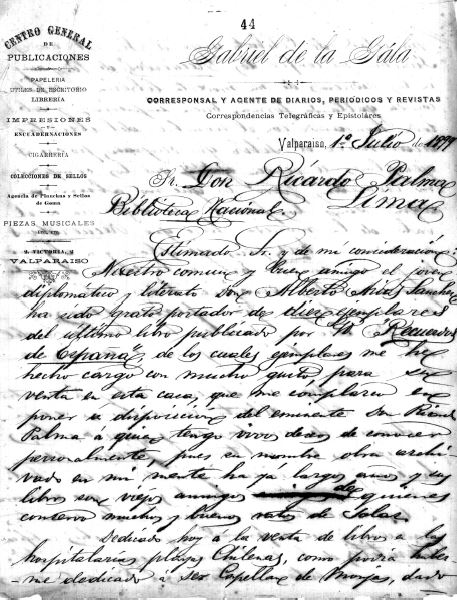 44
CENTRO GENERAL
DE
PUBLICACIONES
PAPELERIA
UTILES DE ESCRITORIO
LIBRERIA
IMPRESIONES
Y
ENCUADERNACIONES
CIGARRERIA
COLECCIONES DE SELLOS
Agencia de Planchas y Sellos
de Goma
PIEZAS MUSICALES
2, VICTORIA, 2
VALPARAISO
Gabriel de la Gála
CORRESPONSAL Y AGENTE DE DIARIOS, PERIÓDICOS Y REVISTAS
Correspondencias Telegráficas y Epistolares
Valparaiso, 1º Julio de 1899
Sr. Don Ricardo Palma
Lima
Biblioteca Nacional.
Estimado Sr. y de mi consideración:
Nuestro comun y buen amigo el joven
diplomático y literato don Alberto Arias Sanchez
ha sido grato portador de diez ejemplares
del último libro publicado por Ud. "Recuerdos
de España", de los cuales ejemplares me he
hecho cargo con mucho gusto para su
venta en esta casa, que me complazco en
poner a disposición del eminente don Ricardo
Palma á quien tengo vivos deseos de conocer
personalmente, pues su nombre obra archi-
vado en mi mente ha ya largos años y sus
libros son viejos amigos de quienes
conservo muchos y buenos ratos de solaz.
Dedicado hoy a la venta de libros a las
hospitalarias playas Chilenas, como podria haber-
me dedicado á ser Capellan de Monjas, dado